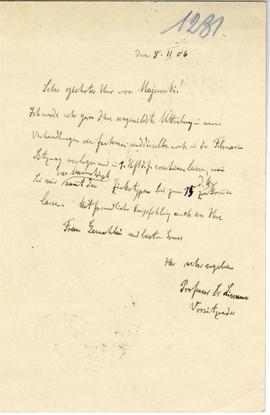 1281.
den 8. II 06
Sehr geehrter Herr von Majewski!
Ich werde sehr gern Ihre angemeldete Mitteilung in unsere
Verhandlungen aufnehmen und dieselbe noch in der Februar-
Sitzung vorlegen und in 1. Heft erscheinen lassen, wenn
Sie mir das samt den Zinkotypen bis zum 15. d. M. zukommen
lassen. Mit freundlicher Empfehlung auch an Ihre
Frau Gemahlin und bestem Gruss
Ihr sehr ergebener
Professor Dr Lissauer
Vorsitzender